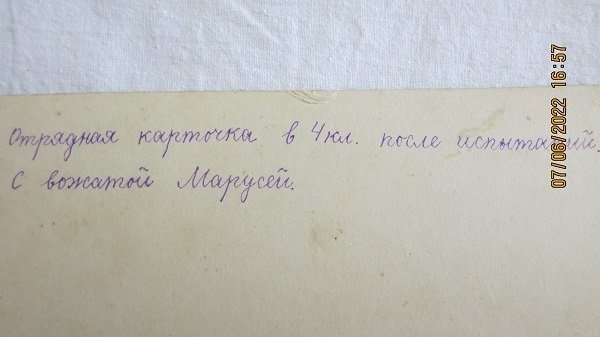 Отрядная карточка в 4 кл. после испытаний.
С вожатой Марусей.
07/06/2022 16:57